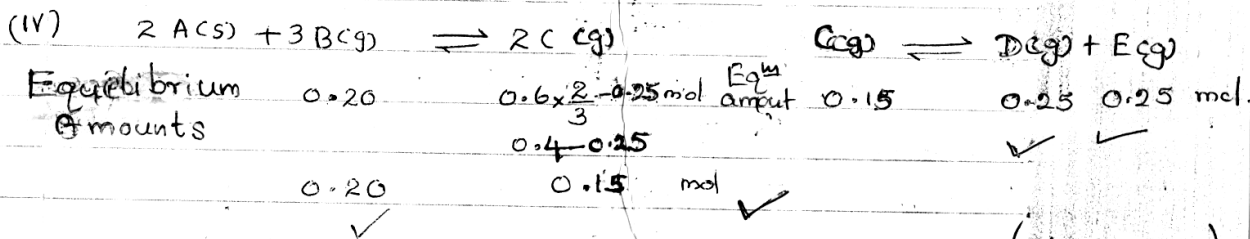 (IV) 2 A(s) + 3 B(g) ⇌ 2 C (g) C(g) ⇌ D(g) + E(g)
Equilibrium 0.20 0.6 × 2/3 - 0.25 mol Eqm amout 0.15 0.25 0.25 mol.
Amounts
0.4 - 0.25
0.20 0.15 mol ✓ ✓ ✓
✓